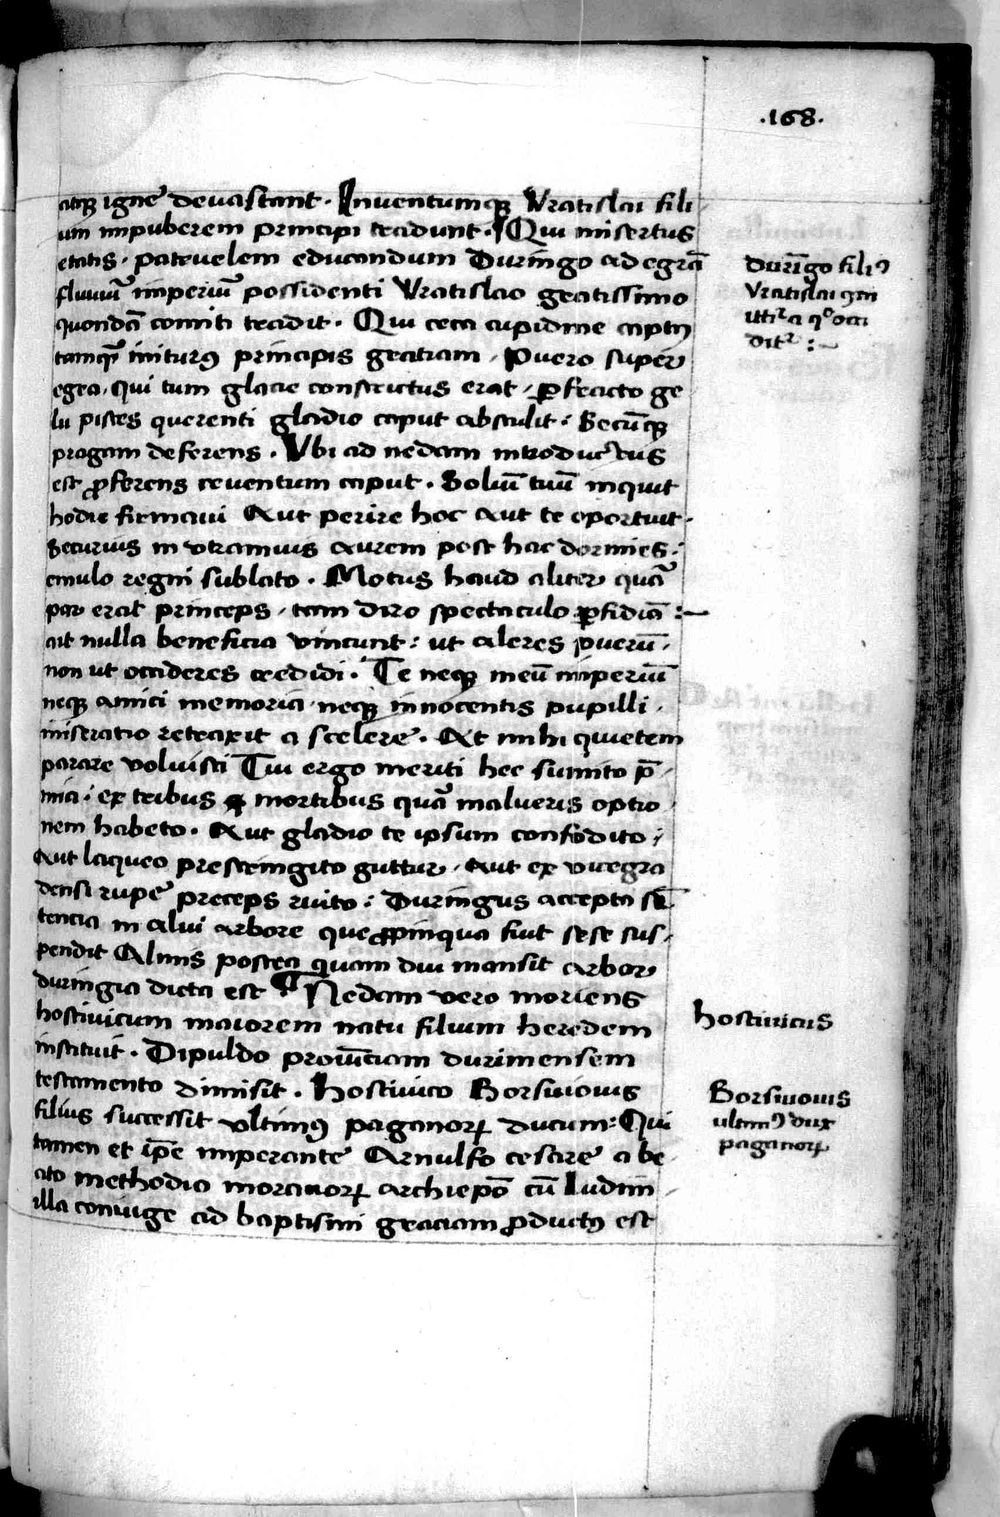 ·168·
atqꝫ igne devastant · Inventumqꝫ Vratislai fili
um impuberem principi tradunt · Qui misertus
etatis · patruelem educandum Duringo ad egrā
fluviū imperiū possidenti Vratislao gratissimo
quondā comiti tradit · Qui ceca cupidine captꝰ
tamqᷓ initurꝰ principis gratiam · Puero super
egra · qui tum glacie constrictus erat · ꝑfracto ge
lu pisces querenti gladio caput absculit · Secūqꝫ
pragam deferens · Vbi ad nedam introductus
est ꝓferens cruentum caput · Soliū tuū inquit
hodie firmaui Aut perire hoc aut te oportuit ·
Securius in utramuis aurem post hac dormies ·
emulo regni sublato · Motus haud aliter quā
par erat princeps · tam diro spectaculo ꝑfidiā :~
ait nulla beneficia vincunt : ut aleres puerū ·
non ut occideres credidi · Te neqꝫ meū imperiū
neqꝫ amici memoria · neqꝫ innocentis pupilli ·
miseratio retraxit a scelere · At mihi quietem
parare voluisti Tui ergo meriti hec sumito p̄
mia · ex tribus mortibus quā malueris optio
nem habeto · Aut gladio te ipsum confodito ;
Aut laqueo prestringito guttur · aut ex vvegra
densi rupe preceps ruito : Duringus accepta sn̄
tencia in alni arbore que ꝓpinqua fuit sese sus ·
pendit Alnus postea quam diu mansit arbor
duringia dicta est ¶ Nedam vero moriens
hostiuicum maiorem natu filium heredem
instituit · Dipuldo prouīciam durimensem
testamento dimisit · Hostiuico Borsiuouis
filius successit ultimꝰ paganorꝝ ducum : Qui
tamen et ip̄e imperante Arnulfo cesare a be
ato methodio morauorꝝ archiepō cū ludmi
illa coniuge ad baptismi graciam ꝓductꝰ est
Durīgo filiꝰ
Vratislai
ditᷣ :~
hostiuicus
Borsiuouis
ultimꝰ dux
paganorꝝ